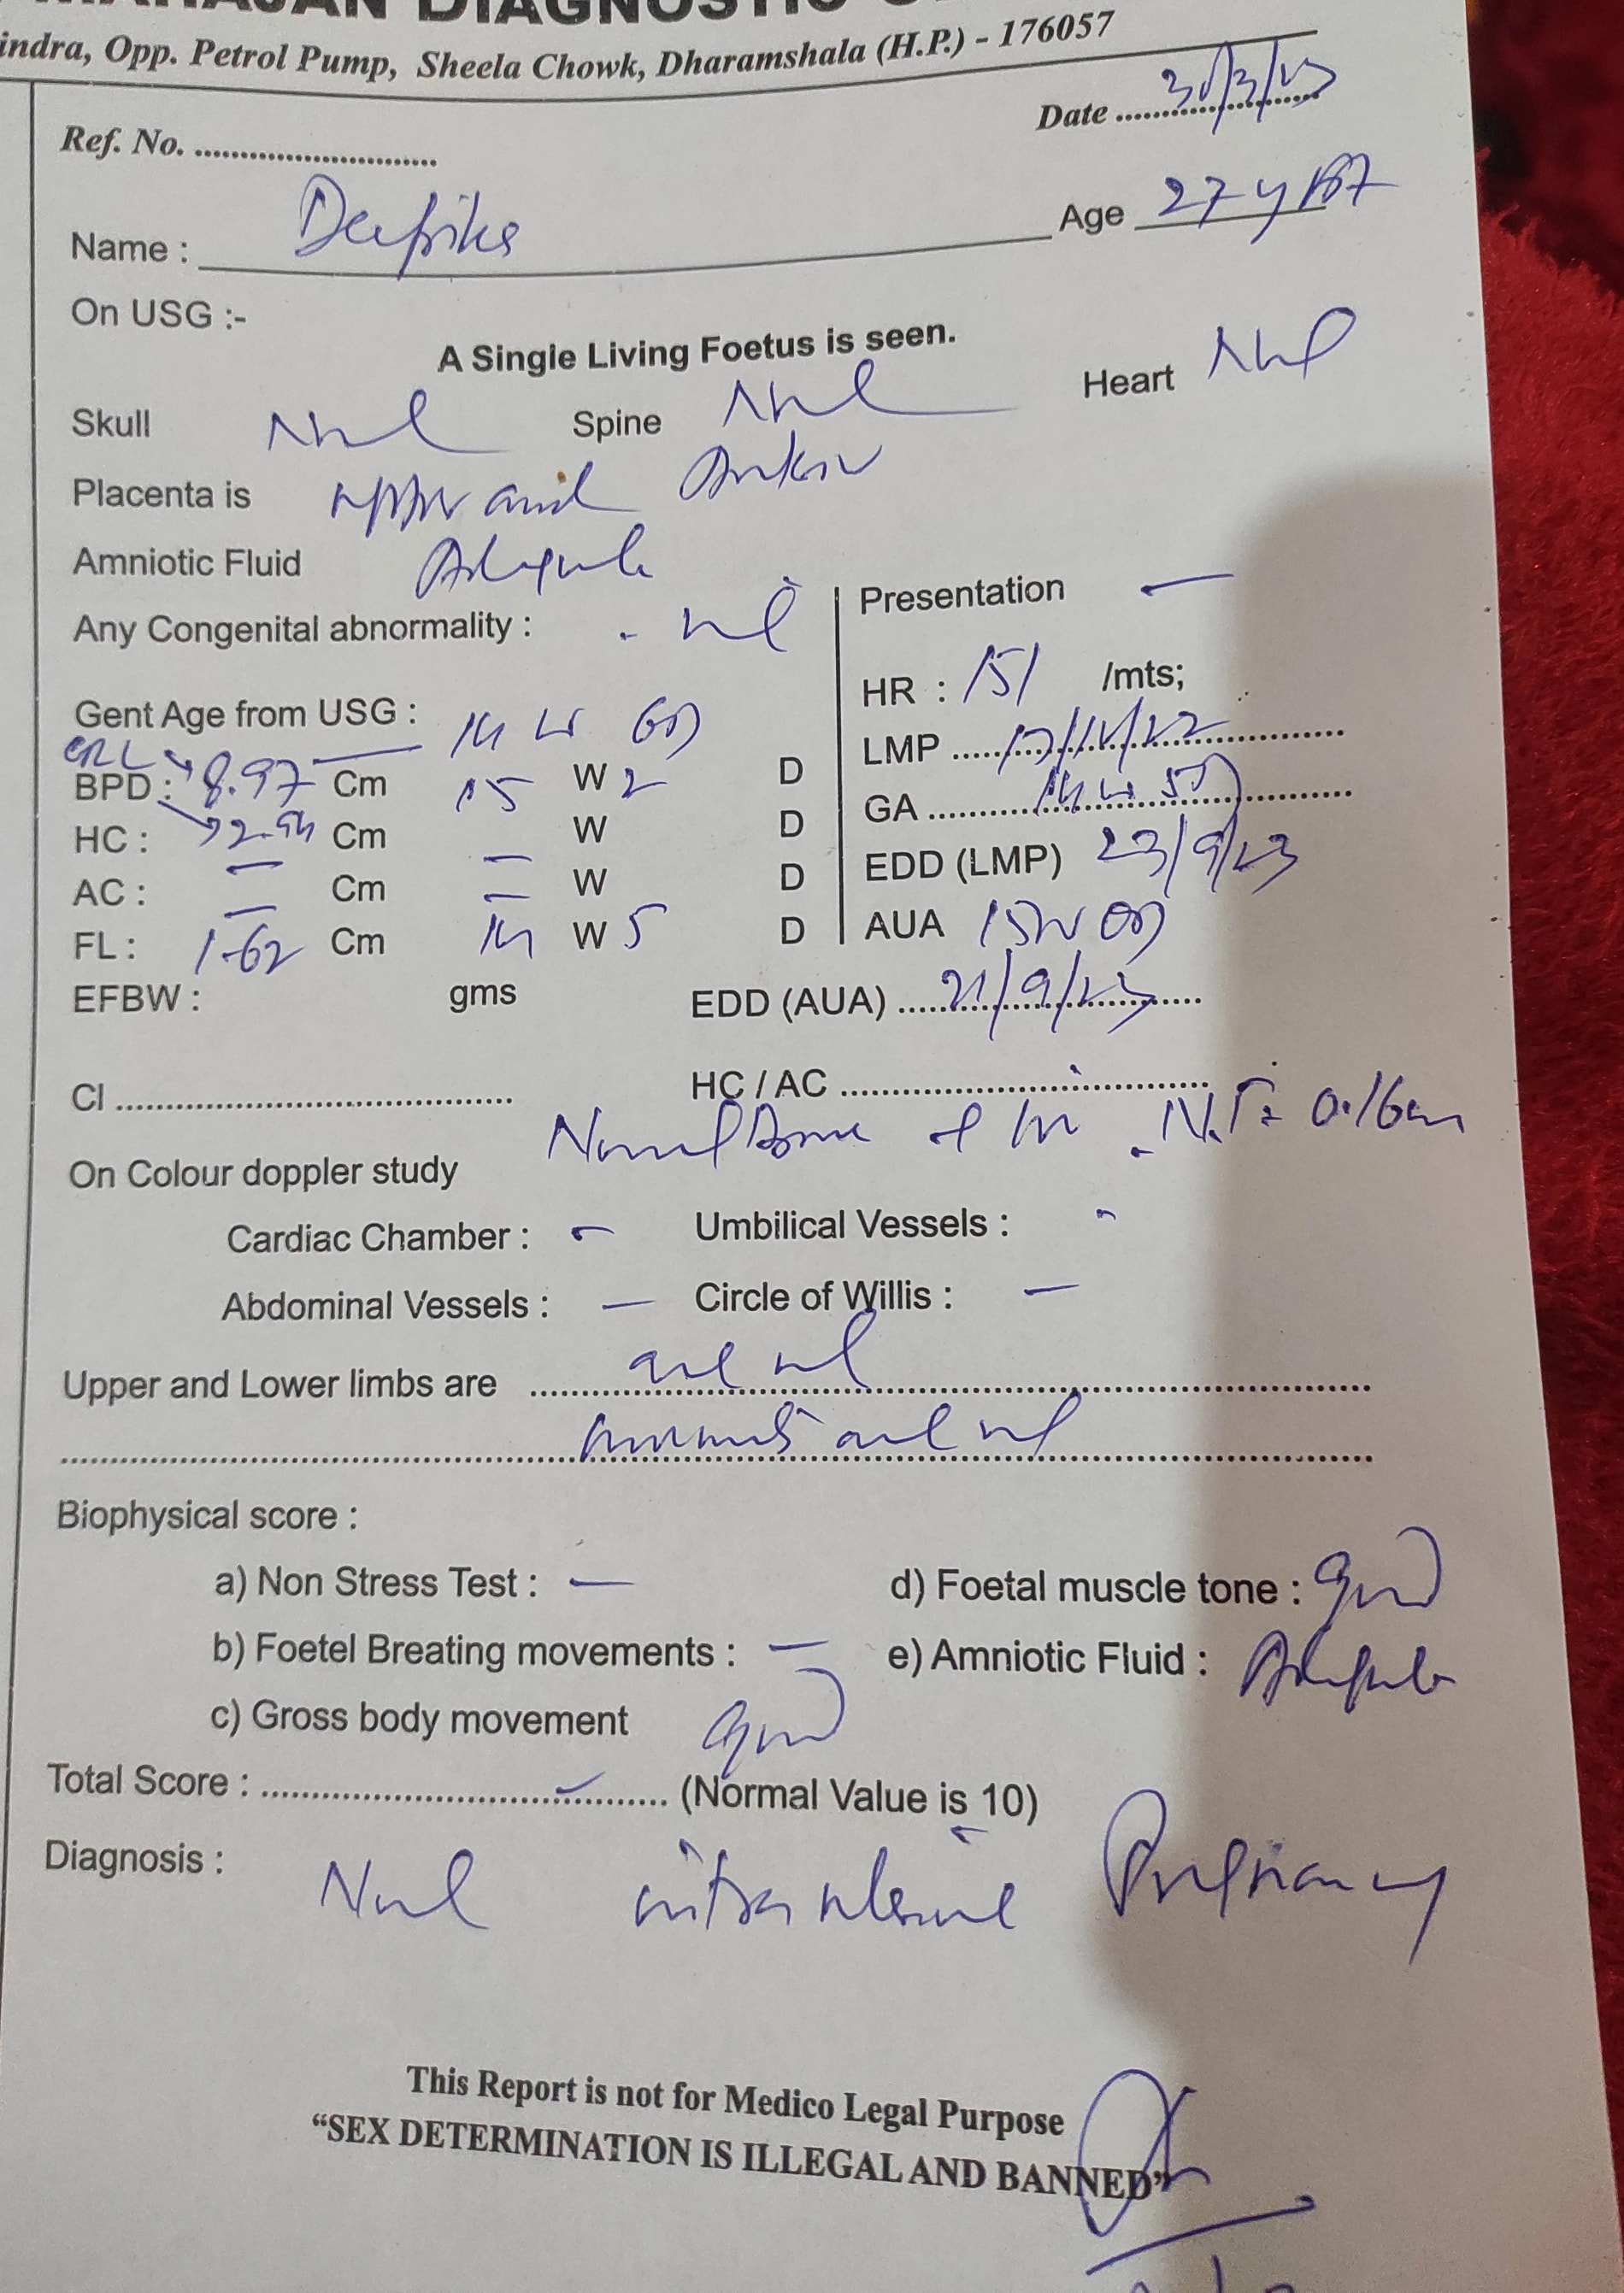 DIAGNOSTIC
indra, Opp. Petrol Pump, Sheela Chowk, Dharamshala (H.P.) - 176057
Ref. No. .......................... Date ...................... 30/3/23
Name : Deepika Age 27 y
On USG :-
A Single Living Foetus is seen.
Skull Nml Spine Nml Heart Nml
Placenta is upper and
Amniotic Fluid Adequate
Any Congenital abnormality : - nil Presentation —
Gent Age from USG : 14 W 6D HR : 151 /mts;
CRL → 8.97 Cm LMP ..... 17/12/22
BPD : → 2.94 Cm 15 W 2 D GA ..... 14 W 5D
HC : — Cm — W D EDD (LMP) 23/9/23
AC : — Cm — W D
FL : 1.62 Cm 14 W 5 D AUA 15W 0D
EFBW : gms EDD (AUA) ..... 21/9/23
CI ........................................ HC / AC ........................................
N.T = 0.16cm
On Colour doppler study
Cardiac Chamber : - Umbilical Vessels : -
Abdominal Vessels : — Circle of Willis : —
Upper and Lower limbs are ..... and nl
movements and nl
Biophysical score :
a) Non Stress Test : — d) Foetal muscle tone : good
b) Foetel Breating movements : — e) Amniotic Fluid : Adequate
c) Gross body movement good
Total Score : ........................................ (Normal Value is 10)
Diagnosis : Nml intrauterine Pregnancy
This Report is not for Medico Legal Purpose
“SEX DETERMINATION IS ILLEGAL AND BANNED”